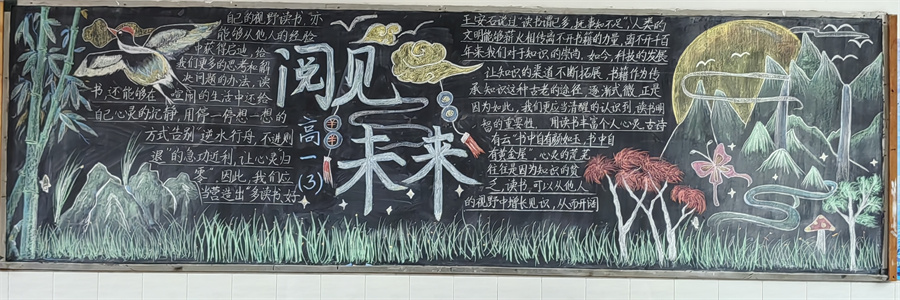 王安石说过“读书谓已多,抚事知不足”,人类的
文明能够薪火相传离不开书籍的力量,离不开千百
年来我们对于知识的崇尚。如今,科技的发展
让知识的渠道不断拓展,书籍作为传
承知识这种古老的途径,逐渐式微,正是
因为如此,我们更应当清醒的认识到,读书明
智的重要性,用读书丰富个人心灵,古诗
有云“书中自有颜如玉,书中自
有黄金屋”,心灵的荒芜
往往是因为知识的贫
乏,读书,可以从他人
的视野中增长见识,从而开阔
阅见
未来
高一(3)
自己的视野读书,亦
能够从他人的经验
中获得启迪,给
我们更多的思考和解
决问题的办法,读
书,还能够在喧闹的生活中还给
自己心灵的沉静,用停一停想一想的
方式告别“逆水行舟,不进则
退”的急功近利,让心灵归
零”因此,我们应
当营造出“多读书,好